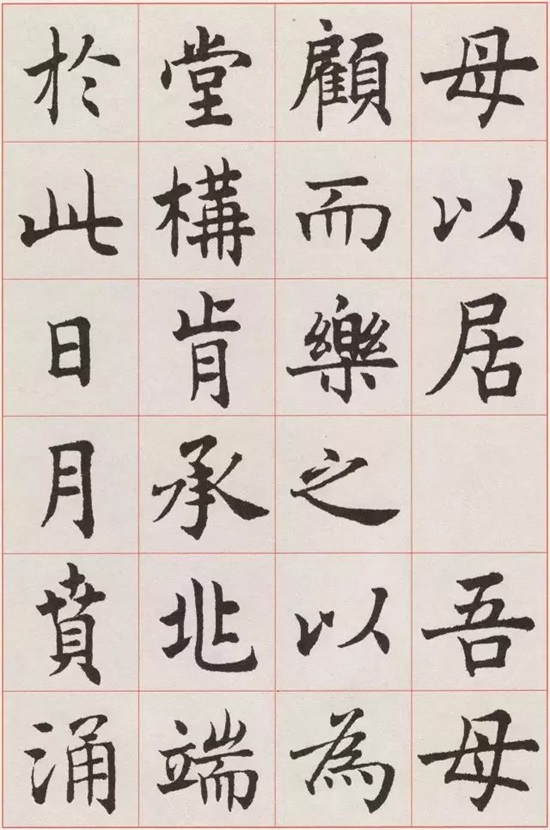 母以居吾母
顧而樂之以為
堂構肯承兆端
於此日月賁涌